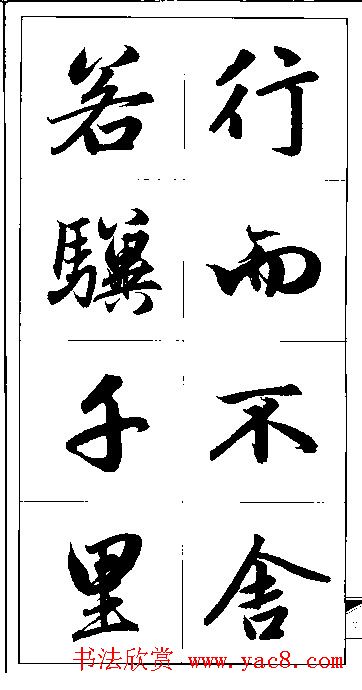 行而不舍
若驥千里
书法欣赏 www.yac8.com